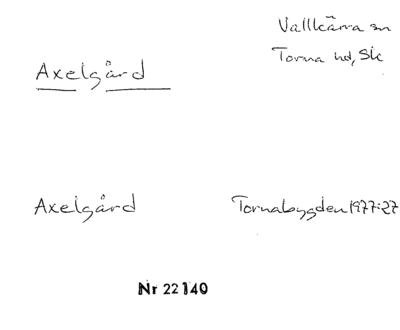 Vallkärra sn
Torna hd, Sk
Axelgård
Axelgård Tornabygden 1977:27
Nr 22140